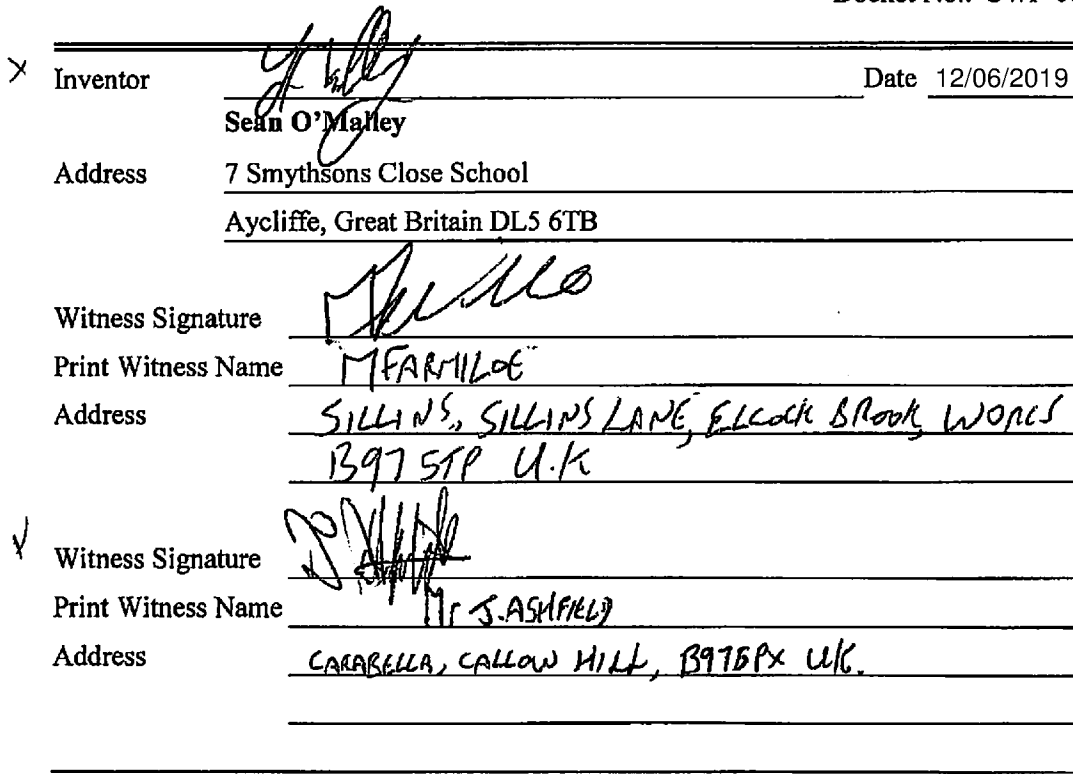 Docket No.:
Inventor Date 12/06/2019
Sean O'Malley
Address 7 Smythsons Close School
Aycliffe, Great Britain DL5 6TB
Witness Signature
Print Witness Name M FARMILOE
Address SILLINS, SILLINS LANE, ELCOCK BROOK, WORCS
B97 5TP U.K
Witness Signature
Print Witness Name Mr J. ASHFIELD
Address CARABELLA, CALLOW HILL, UK.